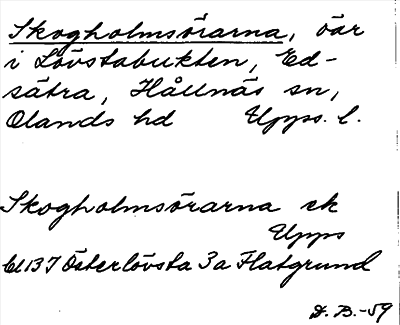 Skogholmsörarna, öar
i Lövstabukten, Ed-
sätra, Hållnäs sn,
Olands hd Upps. l.
Skogholmsörarna ek
Upps
bl 137 Österlövsta 3a Flatgrund
D. B.-59